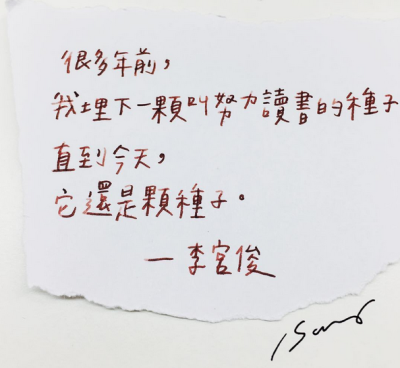 很多年前，
我埋下一顆叫努力讀書的種子
直到今天，
它還是顆種子。
—李宮俊